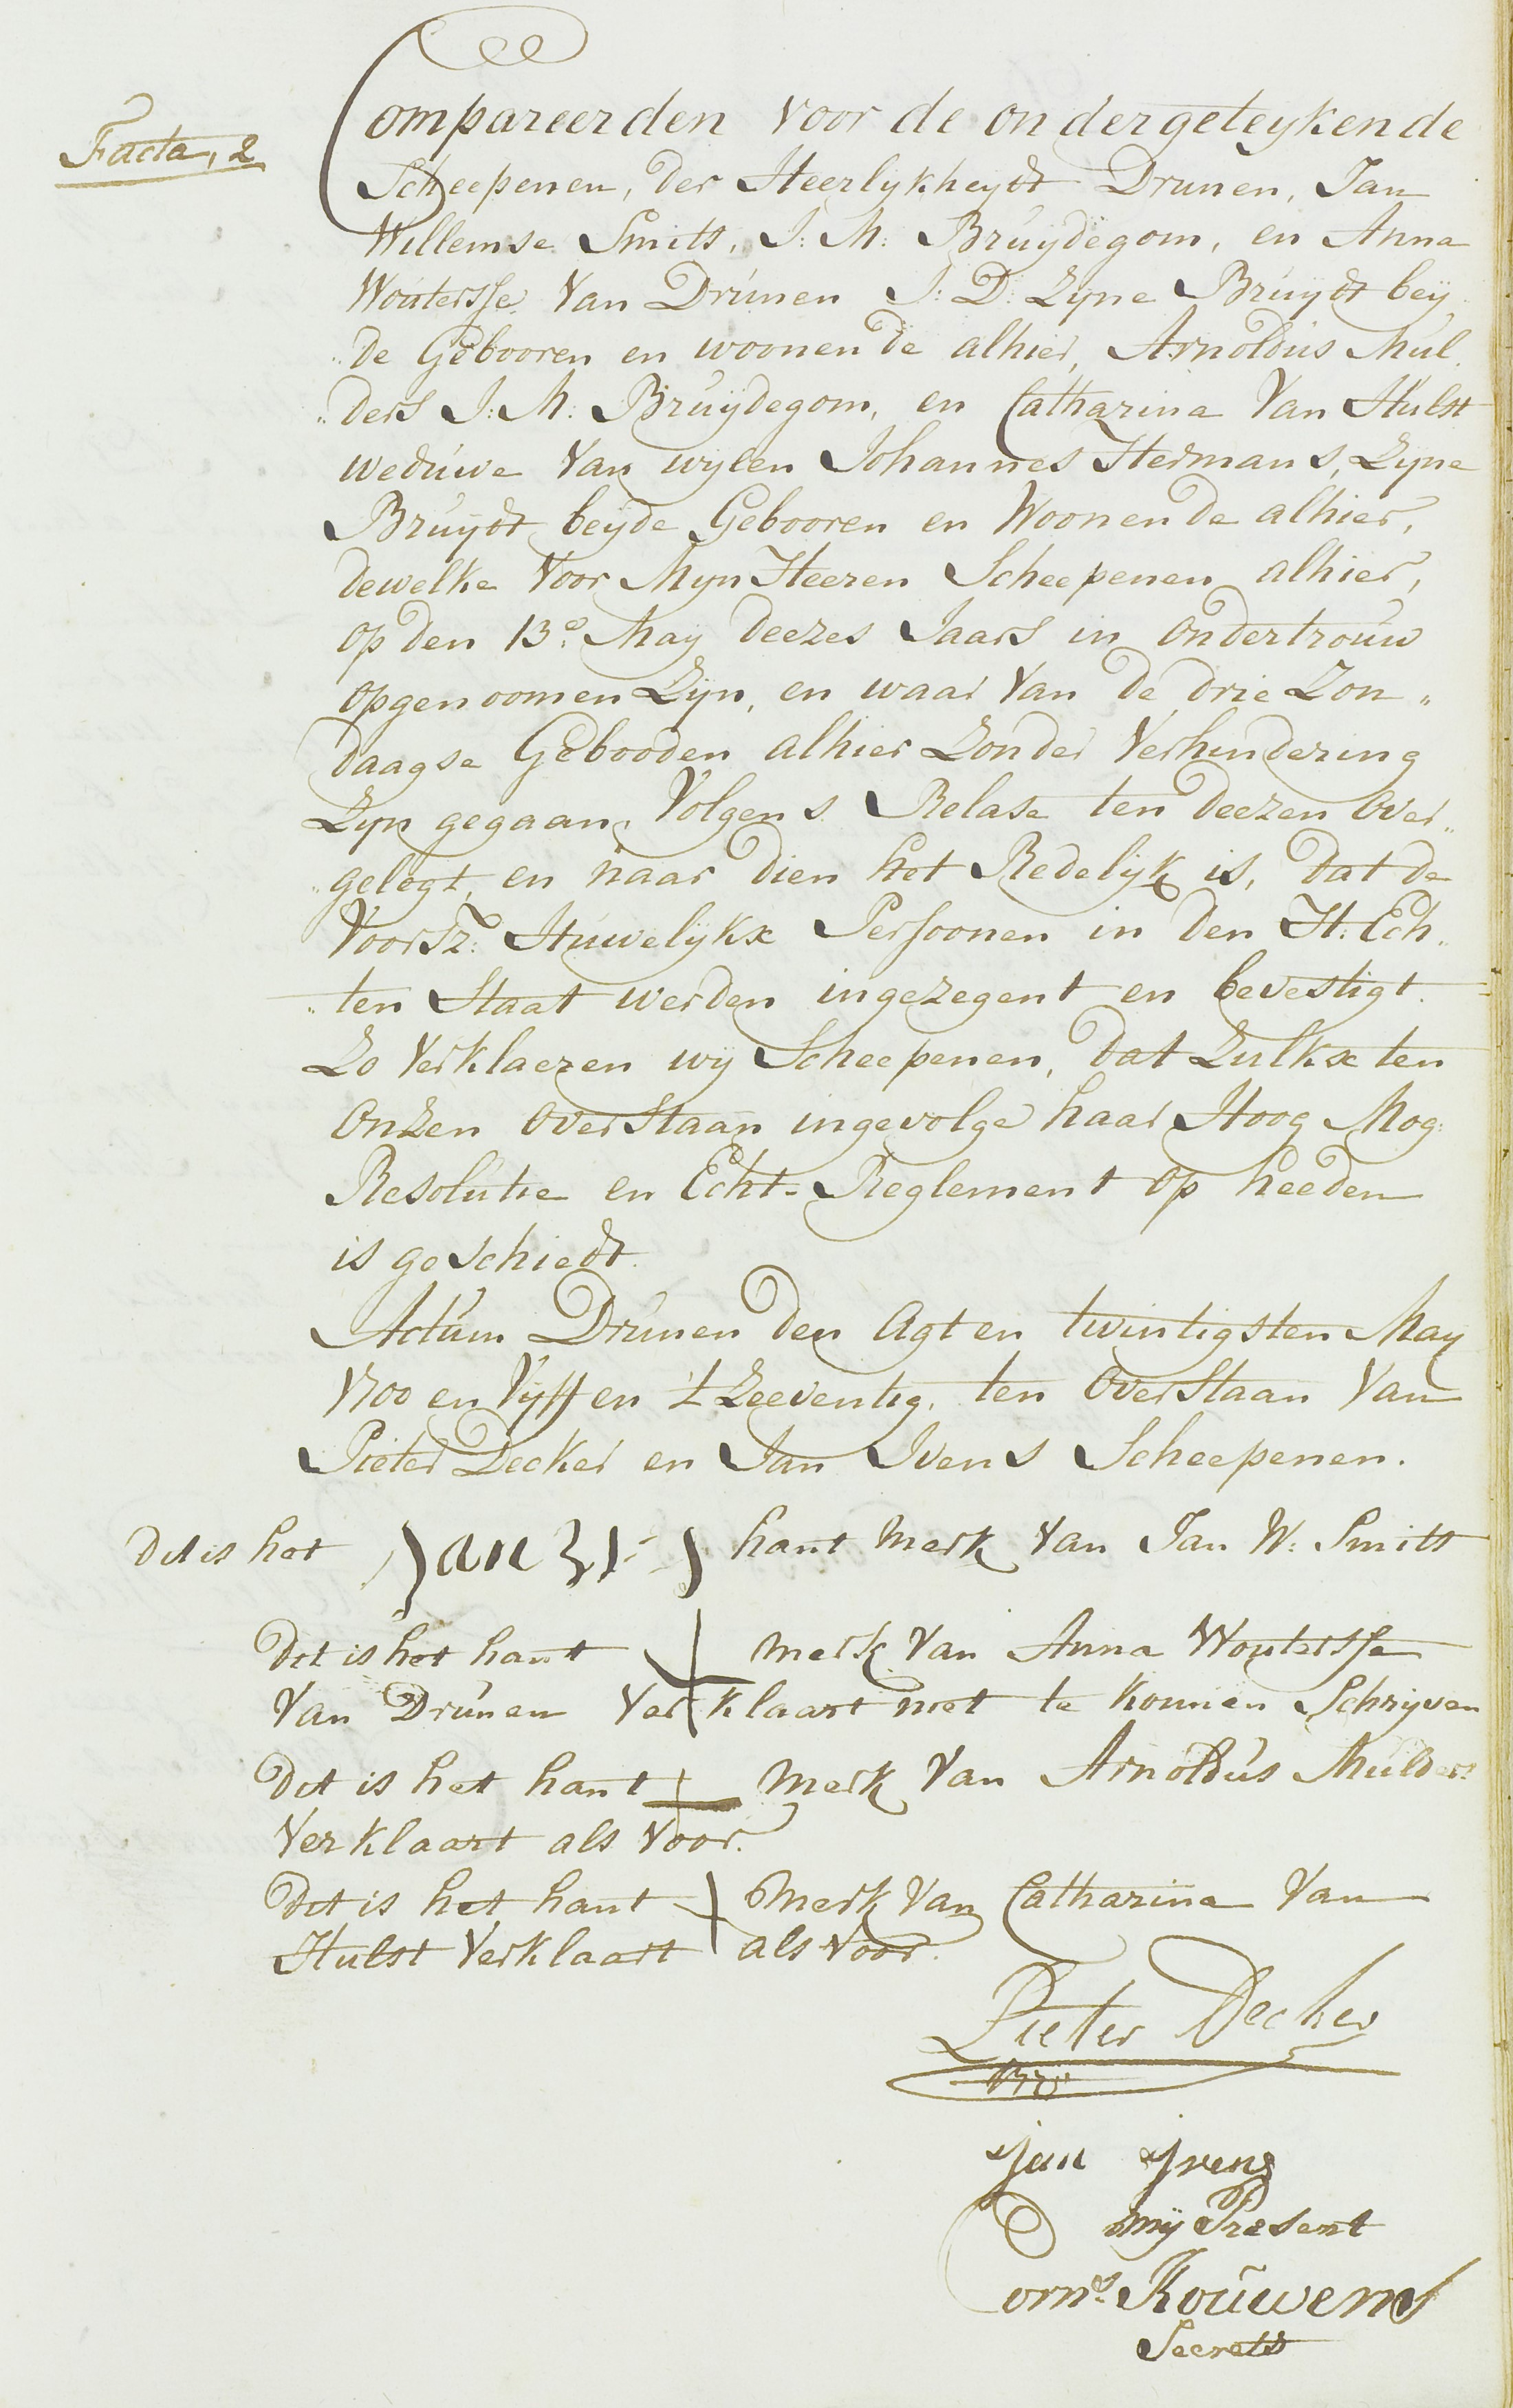 Facta, 2
Compareerden voor de ondergeteykende
Scheepenen, der Heerlykheydt Drunen, Jan
Willemse Smits, J: M: Bruydegom, en Anna
Woutersse van Drunen J: D: Zyne Bruydt bey
de Gebooren en woonende alhier, Arnoldus Mul„
„ders J: M: Bruydegom, en Catharina van Hulst
weduwe van wylen Johannes Hermans, Zyne
Bruydt, beyde Gebooren en Woonende alhier,
dewelke voor Myn Heeren Scheepenen alhier,
op den 13e. May deezes Jaars in ondertrouw
opgenoomen Zyn, en waar van de drie Zon„
daagse Gebooden alhier Zonder Verhindering
Zyn gegaan, Volgens Relase ten deezen over„
„gelegt, en naar dien het Redelyk is, dat de
Voorsz: Huwelykse Persoonen in den H: Ech„
„ten Staat werden ingezegent en bevestigt.
Zo Verklaeren wy Scheepenen, dat Zulkse ten
Onzen Overstaan ingevolge haar Hoog Mog:
Resolutie en Echt-Reglement op heeden
is geschiedt.
Actum Drunen den Agt en twintigsten May
1700 en Vyff en 't Zeeventig, ten Overstaan van
Pieter Decker en Jan Ivens Scheepenen.
Dit is het Jan hant merk van Jan W: Smits
Dit is het hant merk van Anna Woutersse
van Drunen verklaart niet te konnen Schryven
Dit is het hant merk van Arnoldus Mulders
verklaart als voor.
Dit is het hant merk van Catharina van
Hulst verklaart als voor.
Pieter Decker
1775
Jan Ivens
my Present
Corns. Rouwens
Secrets